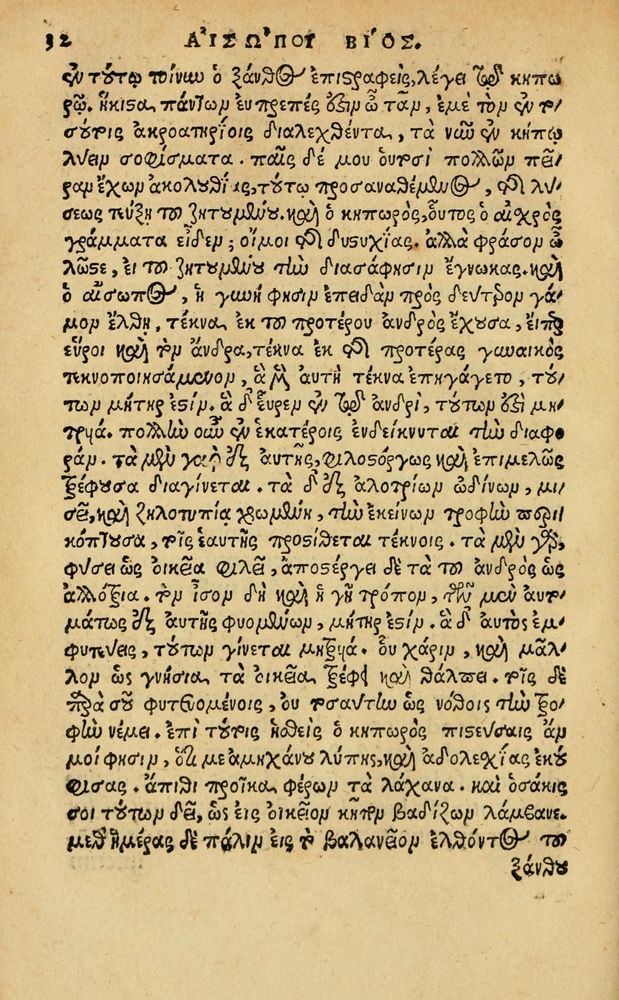 32 ΑἸΣΩ'ΠΟΥ ΒΙ'ΟΣ.
ἐν τούτῳ πίνων ὁ ξάνθος ἐπιστραφεὶς, λέγει τῷ κηπω
ρῷ. ἥκιστα πάντων εὐπρεπές ἐστιν ὦ τᾶν, ἐμὲ τὸν ἐν το/
σούτοις ἀκροατηρίοις διαλεχθέντα, τὰ νῦν ἐν κήπῳ
λύειν σοφίσματα. παῖς δέ μου οὑτοσὶ πολλῶν πεῖ/
ραν ἔχων ἀκολουθίας, τούτῳ προσαναθέμενος, τῆς λύ/
σεως τεύξῃ τοῦ ζητουμένου. καὶ ὁ κηπωρὸς, οὗτος ὁ αἰσχρὸς
γράμματα εἶδεν; οἴμοι τῆς δυστυχίας. ἀλλὰ φράσον ὦ
λῷστε, εἰ τοῦ ζητουμένου τὴν διασάφησιν ἔγνωκας. καὶ
ὁ αἴσωπος, ἡ γυνή φησιν ἐπειδὰν πρὸς δεύτερον γά/
μον ἔλθῃ, τέκνα ἐκ τοῦ προτέρου ἀνδρὸς ἔχουσα, εἴπερ
εὕροι καὶ τὸν ἄνδρα, τέκνα ἐκ τῆς προτέρας γυναικὸς
τεκνοποιησάμενον, ἃ μὲν αὐτὴ τέκνα ἐπηγάγετο, τού/
των μήτηρ ἐστίν. ἃ δ' εὗρεν ἐν τῷ ἀνδρὶ, τούτων ἐστὶ μη/
τρυιά. πολλὴν οὖν ἐν ἑκατέροις ἐνδείκνυται τὴν διαφο
ράν. τὰ μὲν γὰρ ἐξ αὐτῆς, φιλοστόργως καὶ ἐπιμελῶς
τρέφουσα διαγίνεται. τὰ δ' ἐξ ἀλοτρίων ὠδίνων, μι/
σεῖ, καὶ ζηλοτυπίᾳ χρωμένη, τὴν ἐκείνων τροφὴν περι/
κόπτουσα, τοῖς ἑαυτῆς προστίθεται τέκνοις. τὰ μὲν γὰρ,
φύσει ὡς οἰκεῖα φιλεῖ, ἀποστέργει δὲ τὰ τοῦ ἀνδρὸς ὡς
ἀλλότρια. τὸν ἴσον δὴ καὶ ἡ γῆ τρόπον, τῶν μὲν αὐτο/
μάτως ἐξ αὐτῆς φυομένων, μήτηρ ἐστίν. ἃ δ' αὐτὸς ἐμ/
φυτεύεις, τούτων γίνεται μητρυιά. οὗ χάριν, καὶ μᾶλ/
λον ὡς γνήσια τὰ οἰκεῖα τρέφει καὶ θάλπει. τοῖς δὲ
παρὰ σοῦ φυτευομένοις, οὐ τοσαύτην ὡς νόθοις τὴν τρο/
φὴν νέμει. ἐπὶ τούτοις ἡσθεὶς ὁ κηπωρὸς πιστεύσαις ἄν
μοί φησιν, ὅτι με ἀμηχάνου λύπης, καὶ ἀδολεχίας ἐκού
φισας. ἄπιθι προῖκα φέρων τὰ λάχανα. καὶ ὁσάκις
σοι τούτων δεῖ, ὡς εἰς οἰκεῖον κῆπον βαδίζων λάμβανε.
μεθ' ἡμέρας δὲ πάλιν εἰς τὸ βαλανεῖον ἐλθόντος τοῦ
ξάνθου